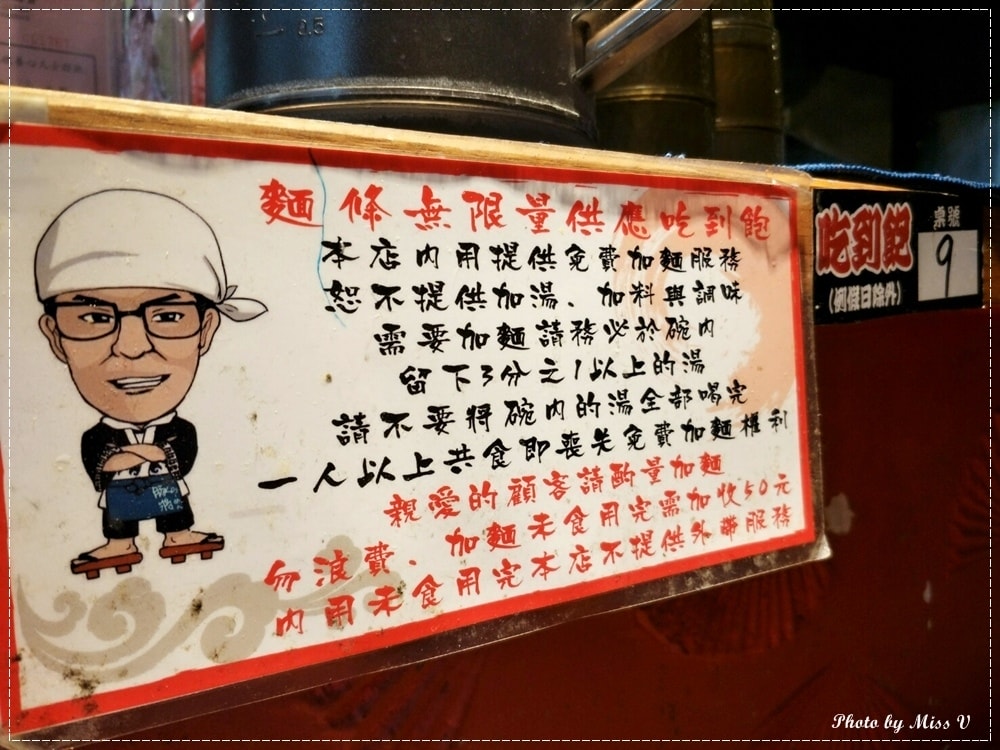 麵條無限量供應吃到飽
本店內用提供免費加麵服務
恕不提供加湯、加料與調味
需要加麵請務必於碗內
留下3分之1以上的湯
請不要將碗內的湯全部喝完
一人以上共食即喪失免費加麵權利
親愛的顧客請酌量加麵
勿浪費、加麵未食用完需加收50元
內用未食用完本店不提供外帶服務
吃到飽
(例假日除外)
桌號
9
Photo by Miss V